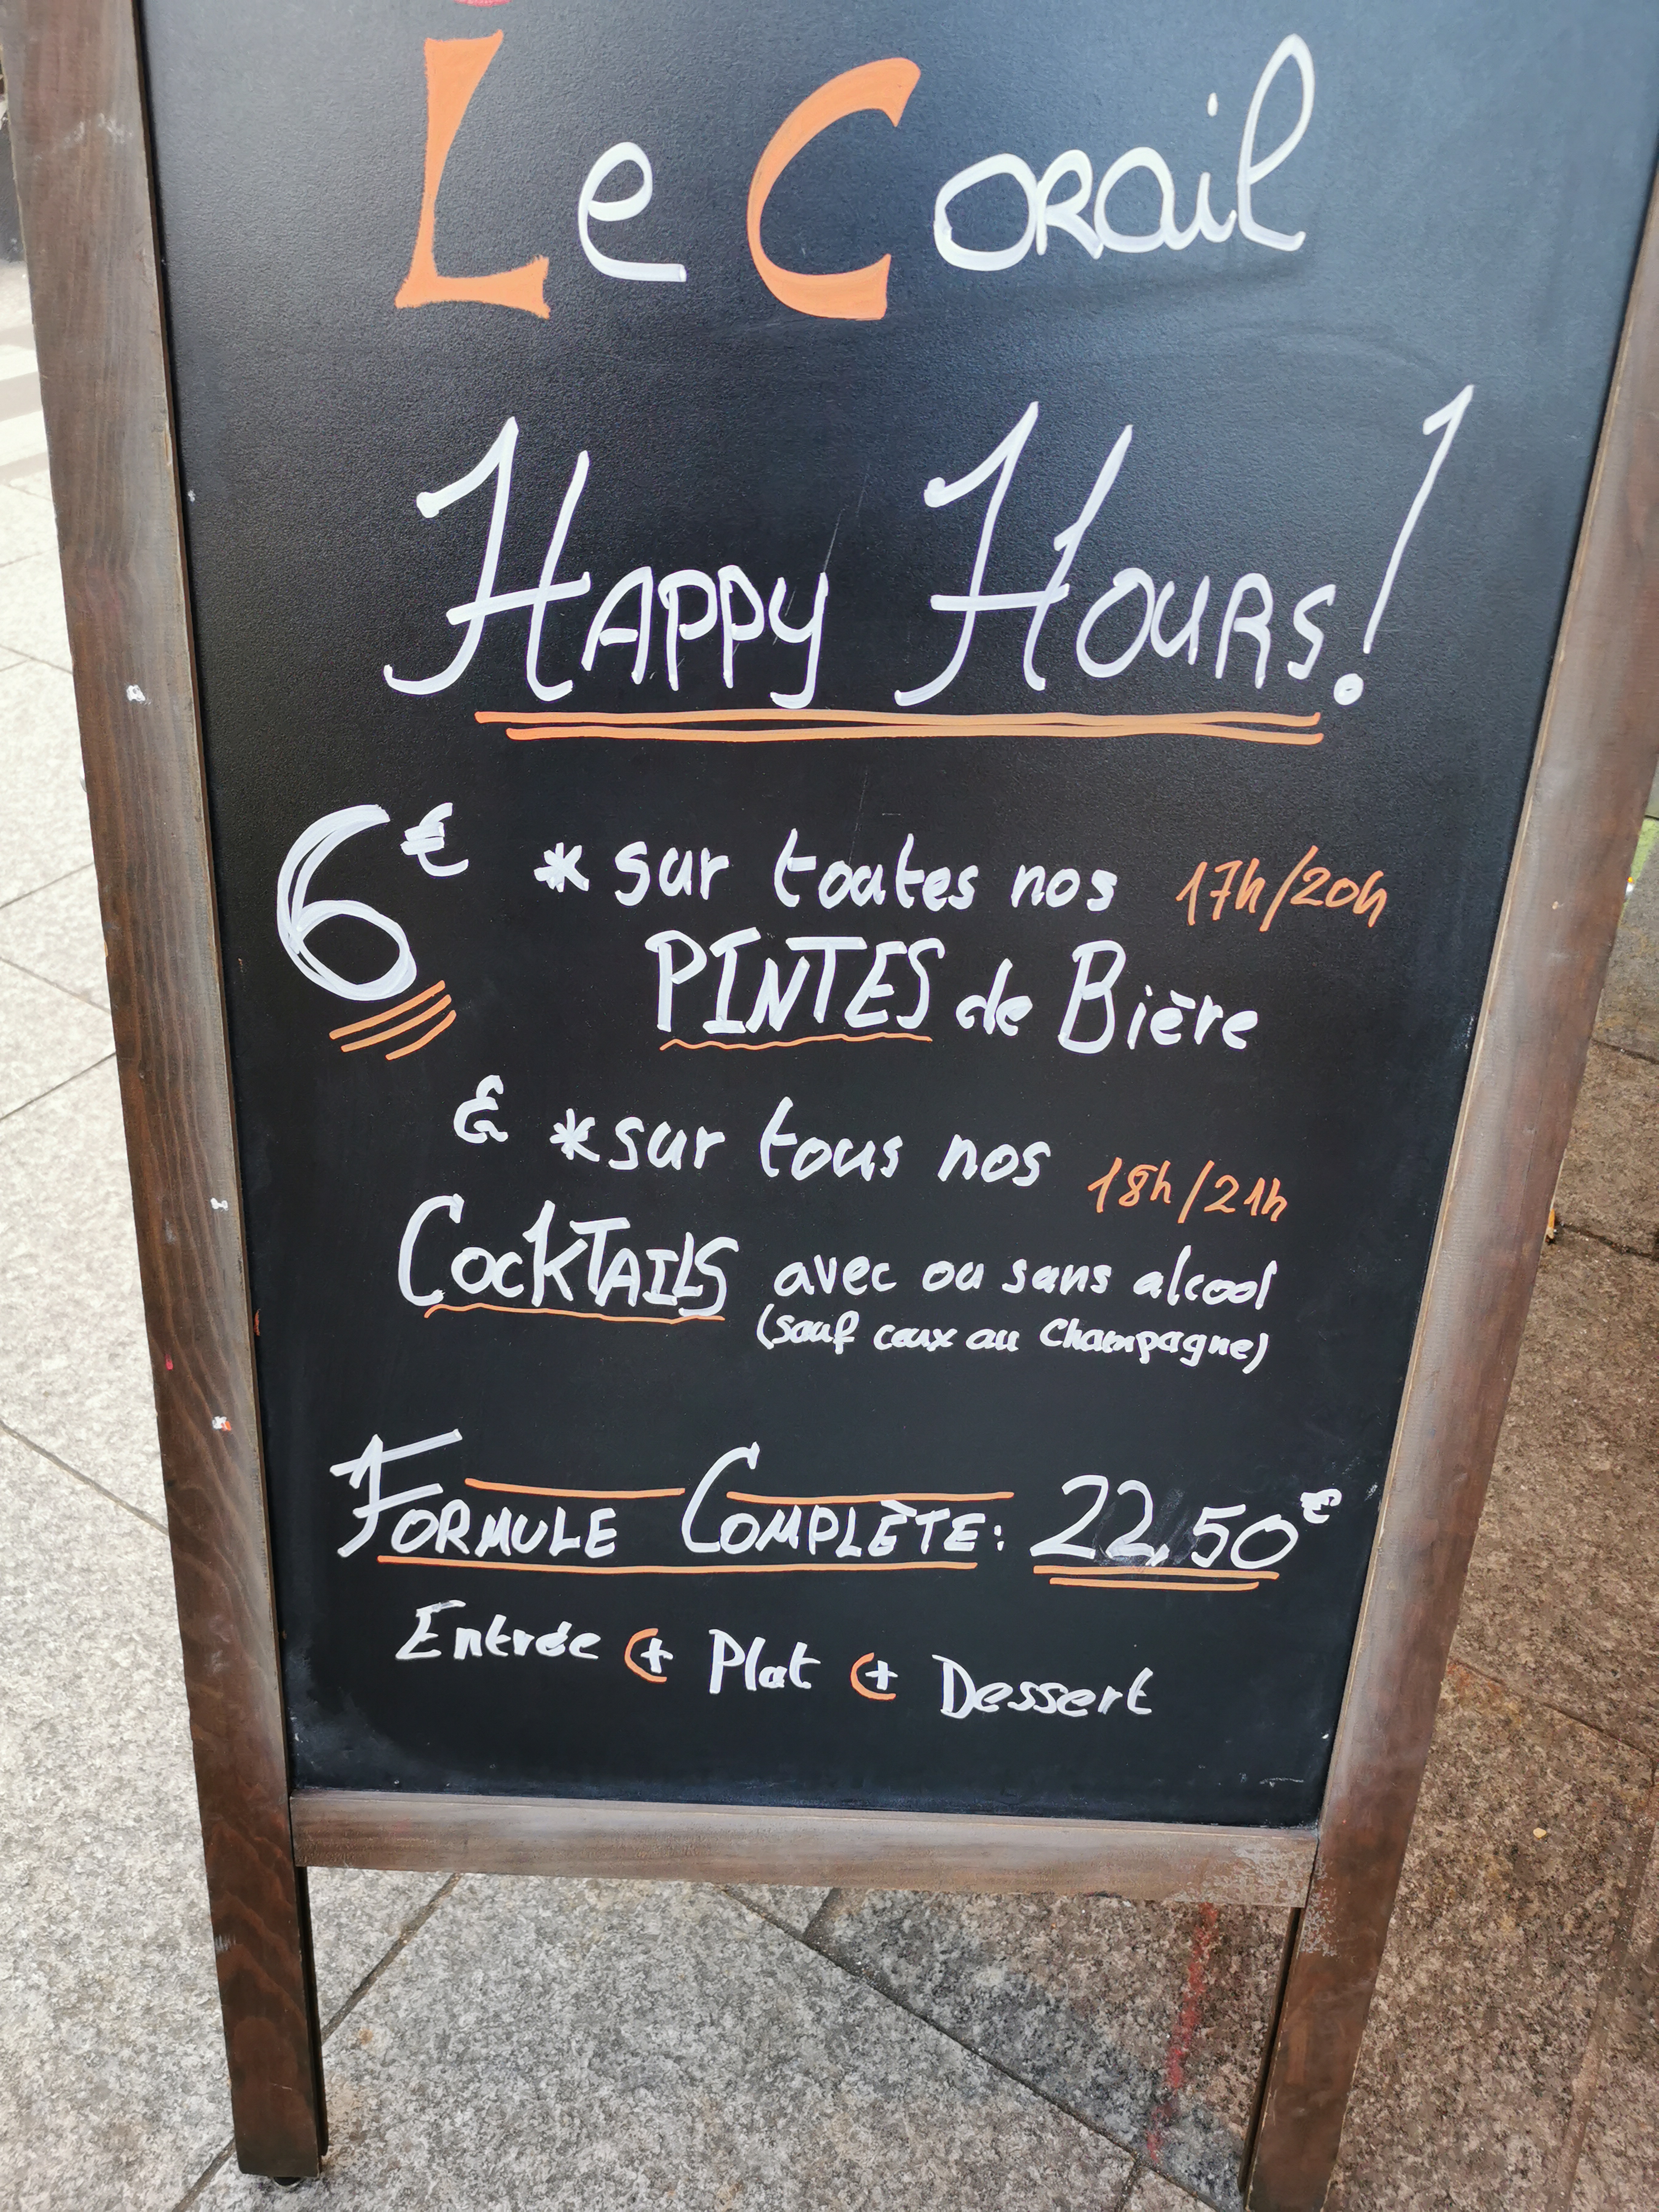 Le Corail
Happy Hours!
6€ *sur toutes nos 17h/20h
PINTES de Bière
& *sur tous nos 18h/21h
COCKTAILS avec ou sans alcool
(sauf ceux au Champagne)
FORMULE COMPLÈTE: 22,50€
Entrée + Plat + Dessert